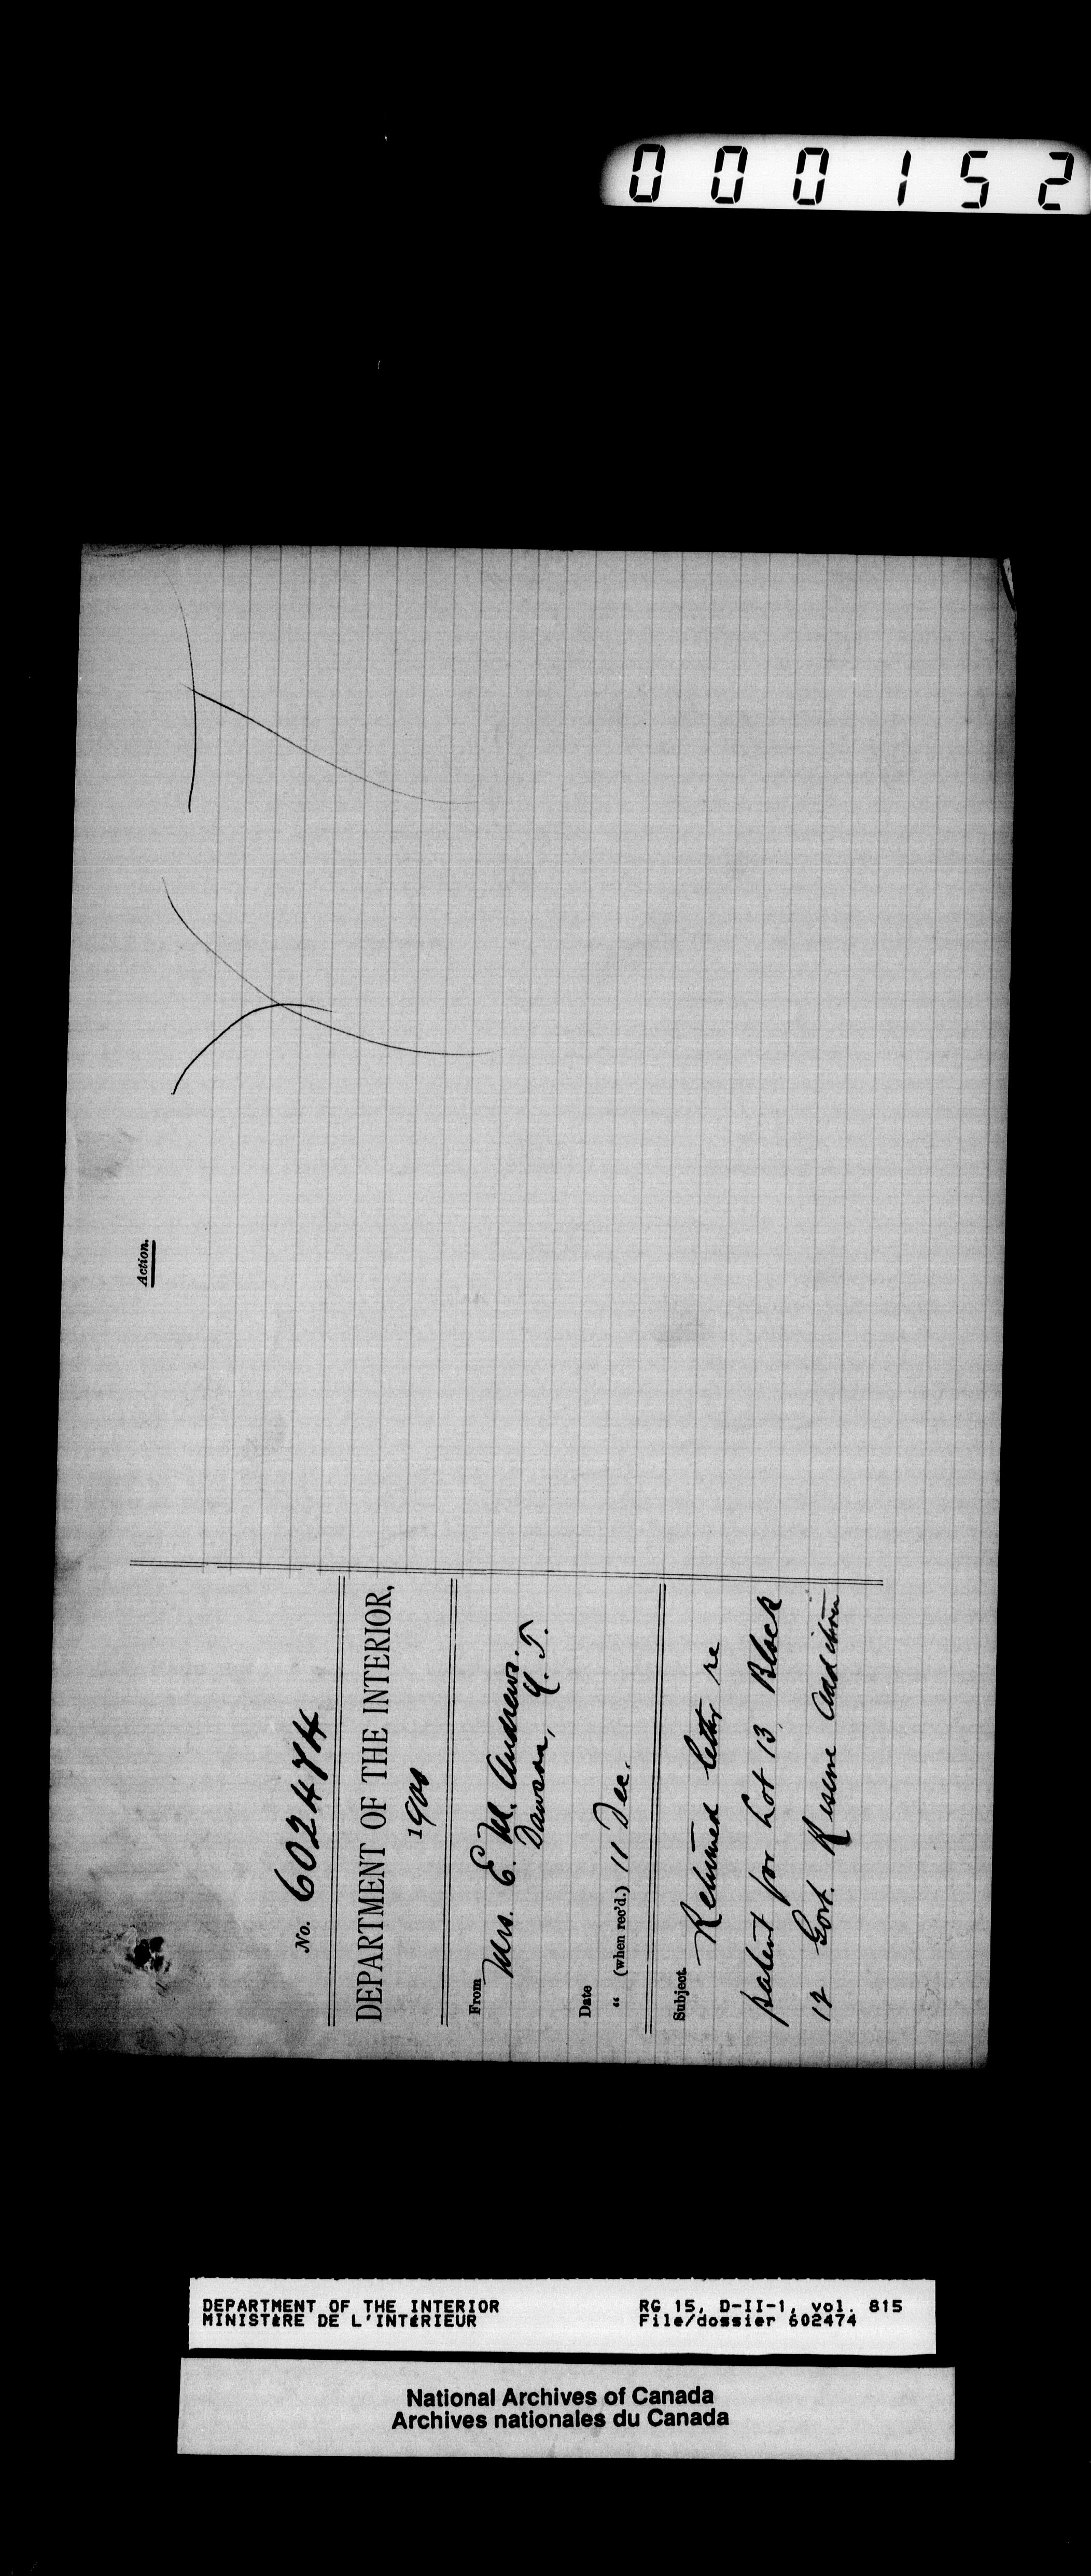 000152
Action.
No. 602474
DEPARTMENT OF THE INTERIOR,
1900
From Mrs. E. M. Andrews.
Dawson, Y. T.
Date
" (when rec'd.) 11 Dec.
Subject. Returned letter re
patent for Lot 13, Block
12 Govt. Reserve Addition
DEPARTMENT OF THE INTERIOR
MINISTÈRE DE L'INTÉRIEUR
RG 15, D-II-1, vol. 815
File/dossier 602474
National Archives of Canada
Archives nationales du Canada